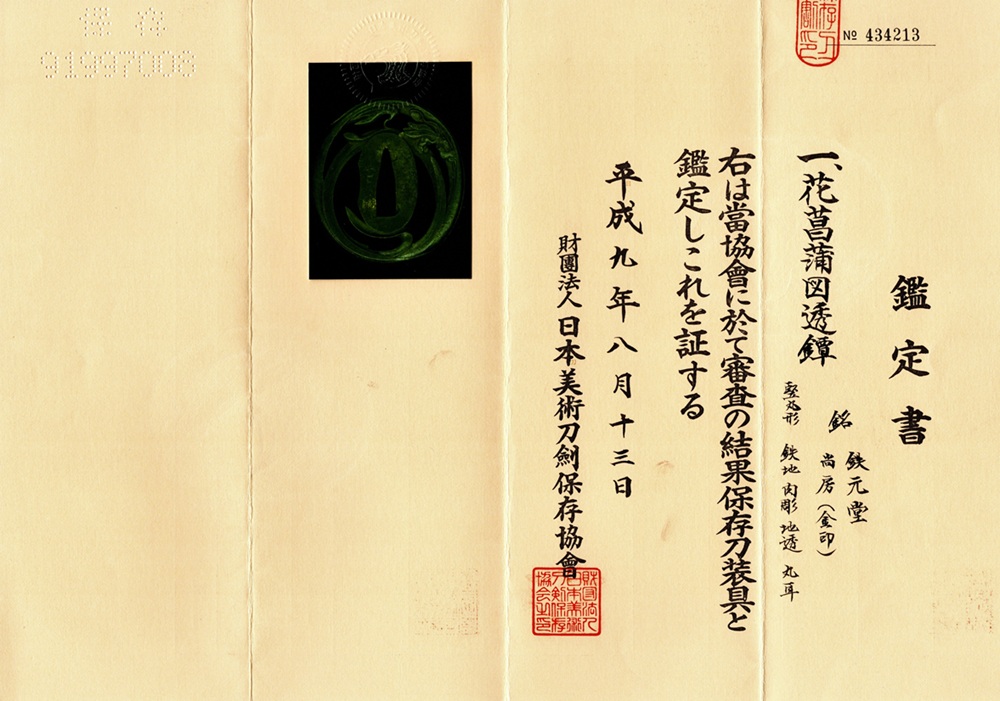 № 434213
鑑定書
一、花菖蒲図透鐔
銘 鉄元堂
尚房（金印）
竪丸形 鉄地 肉彫 地透 丸耳
右は當協會に於て審査の結果保存刀装具と
鑑定しこれを証する
平成九年八月十三日
財團法人日本美術刀劍保存協會
財団法人
日本美術
刀剣保存
協会之印
保存
91997008